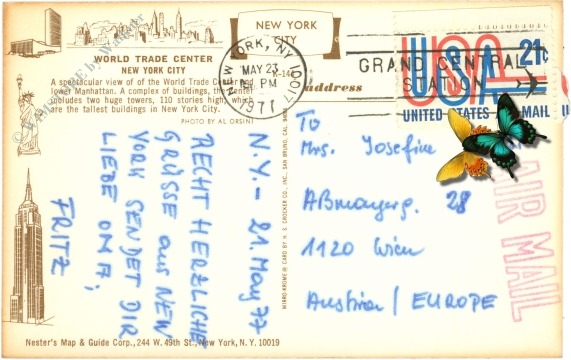 WORLD TRADE CENTER
NEW YORK CITY
A spectacular view of of the World Trade Center and
lower Manhattan. A complex of buildings, the center
includes two huge towers, 110 stories high, which
are the tallest buildings in New York City.
PHOTO BY AL ORSINI
N.Y. - 21. May 77
RECHT HERZLICHE
GRÜSSE aus NEW
YORK SENDET DIR
LIEBE OMA,
FRITZ
Nester's Map & Guide Corp., 244 W. 49th St., New York, N. Y. 10019
MIRRO-KROME® CARD BY H. S. CROCKER CO., INC., SAN BRUNO, CAL.
NEW YORK
CITY
K-14
address
NEW YORK, NY 10017
MAY 23
PM
1977
GRAND CENTRAL
STATION
USA 21c
UNITED STATES AIR MAIL
AIR MAIL
To
Mrs. Josefine
Aßmayerg. 28
1120 Wien
Austria / EUROPE